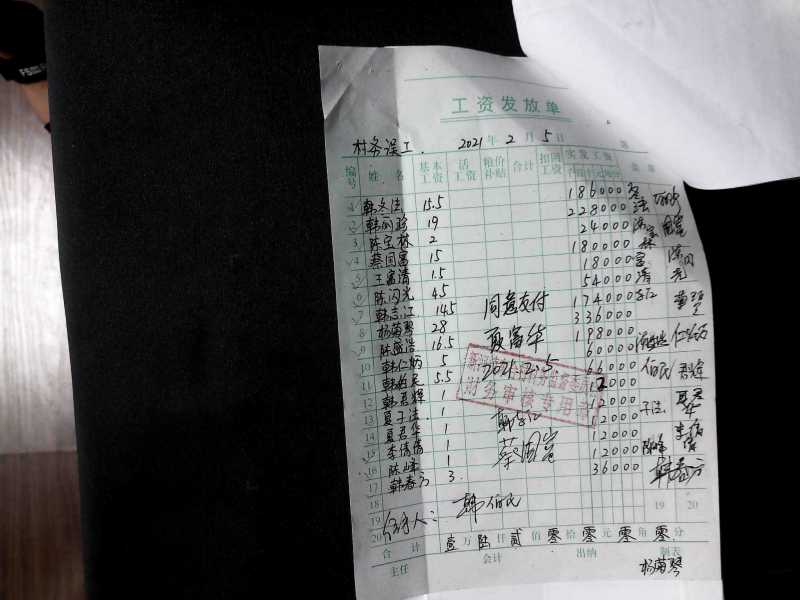 工资发放单
村务误工. 2021年2月5日
编号 姓名 基本工资 活工资 粮价补贴 合计 扣回工资 实发工资
1 韩冬法 15.5 186000
2 韩丽珍 19 228000
3 陈宝林 2 24000
4 蔡国富 15 180000
5 王富清 1.5 18000
6 陈闪光 4.5 54000
7 韩志江 14.5 174000
8 杨菊琴 28 336000
9 陈益浩 16.5 198000
10 韩仁炳 5 60000
11 韩柏足 5.5 66000
12 韩君辉 1 12000
13 夏子法 1 12000
14 夏君华 1 12000
15 李倩倩 1 12000
16 陈峰 1 12000
17 韩春方 3. 36000
同意支付
夏富华
2021.2.5
财务审核专用章
韩志江
蔡国富
18
19 人: 韩伯民
20
19 20
合计 壹万陆仟贰佰零拾零元零角零分
主任 会计 出纳 制表
杨菊琴